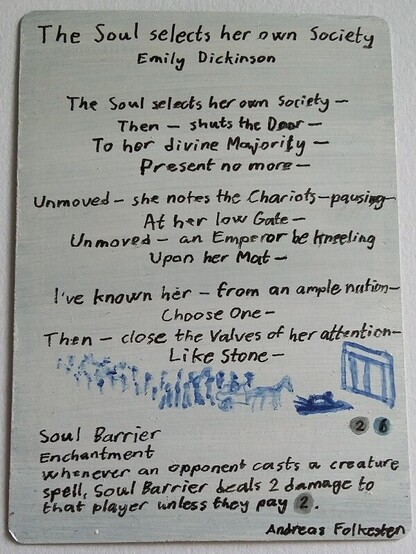 The Soul selects her own Society
Emily Dickinson
The Soul selects her own Society —
Then — shuts the Door —
To her divine Majority —
Present no more —
Unmoved — she notes the Chariots — pausing —
At her low Gate —
Unmoved — an Emperor be kneeling
Upon her Mat —
I've known her — from an ample nation —
Choose One —
Then — close the Valves of her attention —
Like Stone —
2 6
Soul Barrier
Enchantment
Whenever an opponent casts a creature
spell, Soul Barrier deals 2 damage to
that player unless they pay 2.
Andreas Folkesten